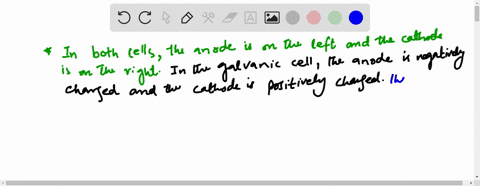 * In both cells, the anode is on the left and the cathode
is on the right. In the galvanic cell, the anode is negatively
charged and the cathode is positively charged. In